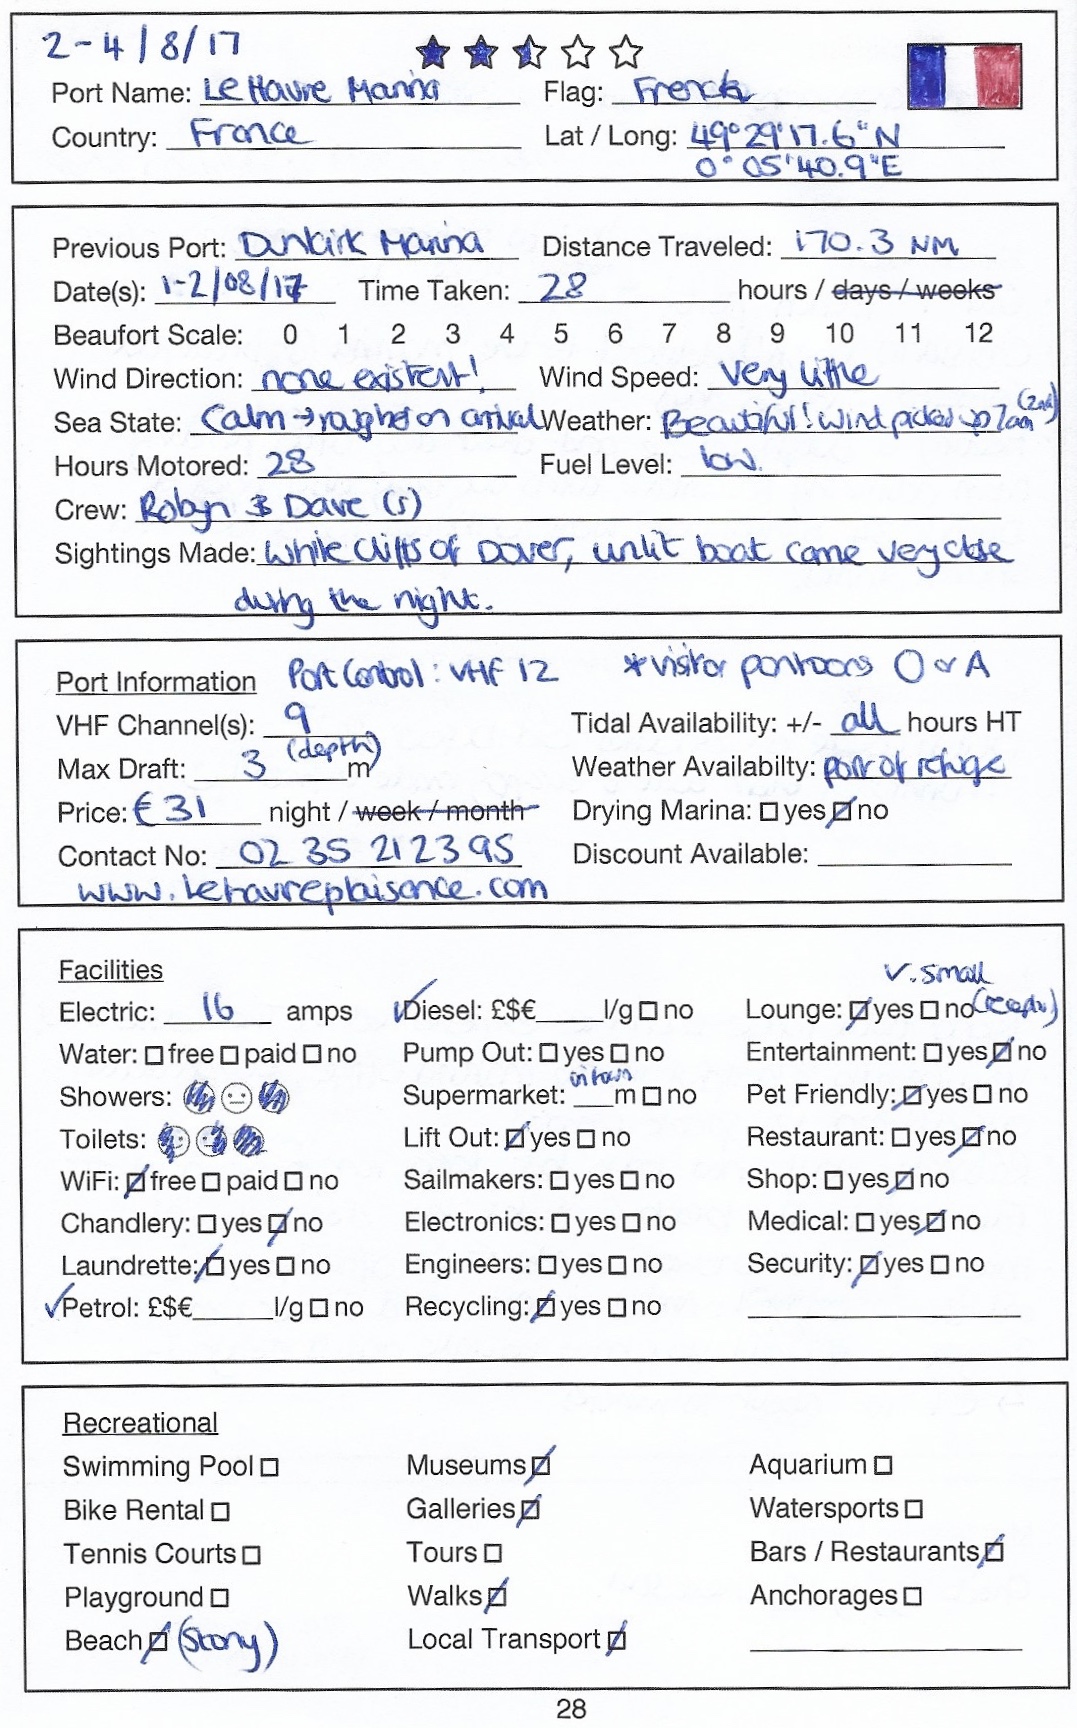 2-4/8/17
Port Name: Le Havre Marina Flag: French
Country: France Lat / Long: 49°29'17.6"N
0°05'40.9"E
Previous Port: Dunkirk Marina Distance Traveled: 170.3 NM
Date(s): 1-2/08/17 Time Taken: 28 hours / days / weeks
Beaufort Scale: 0 1 2 3 4 5 6 7 8 9 10 11 12
Wind Direction: none existent! Wind Speed: Very little
Sea State: Calm → rougher on arrival Weather: Beautiful! Wind picked up 7am (2nd)
Hours Motored: 28 Fuel Level: low.
Crew: Robyn & Dave (s)
Sightings Made: White Cliffs of Dover, unlit boat came very close
during the night.
Port Information Port Control: VHF 12 *visitor pontoons O or A
VHF Channel(s): 9 Tidal Availability: +/- all hours HT
Max Draft: 3 (depth) m Weather Availabilty: port of refuge
Price: €31 night / week / month Drying Marina: □ yes ☑ no
Contact No: 02 35 212395 Discount Available:
www.lehavreplaisance.com
Facilities v. small
Electric: 16 amps ✓Diesel: £$€ l/g □ no Lounge: ☑ yes □ no (recep)
Water: □ free □ paid □ no Pump Out: □ yes □ no Entertainment: □ yes ☑ no
Showers: Supermarket: in town m □ no Pet Friendly: ☑ yes □ no
Toilets: Lift Out: ☑ yes □ no Restaurant: □ yes ☑ no
WiFi: ☑ free □ paid □ no Sailmakers: □ yes □ no Shop: □ yes ☑ no
Chandlery: □ yes ☑ no Electronics: □ yes □ no Medical: □ yes ☑ no
Laundrette: ☑ yes □ no Engineers: □ yes □ no Security: ☑ yes □ no
✓Petrol: £$€ l/g □ no Recycling: ☑ yes □ no
Recreational
Swimming Pool □ Museums ☑ Aquarium □
Bike Rental □ Galleries ☑ Watersports □
Tennis Courts □ Tours □ Bars / Restaurants ☑
Playground □ Walks ☑ Anchorages □
Beach ☑ (Stony) Local Transport ☑
28